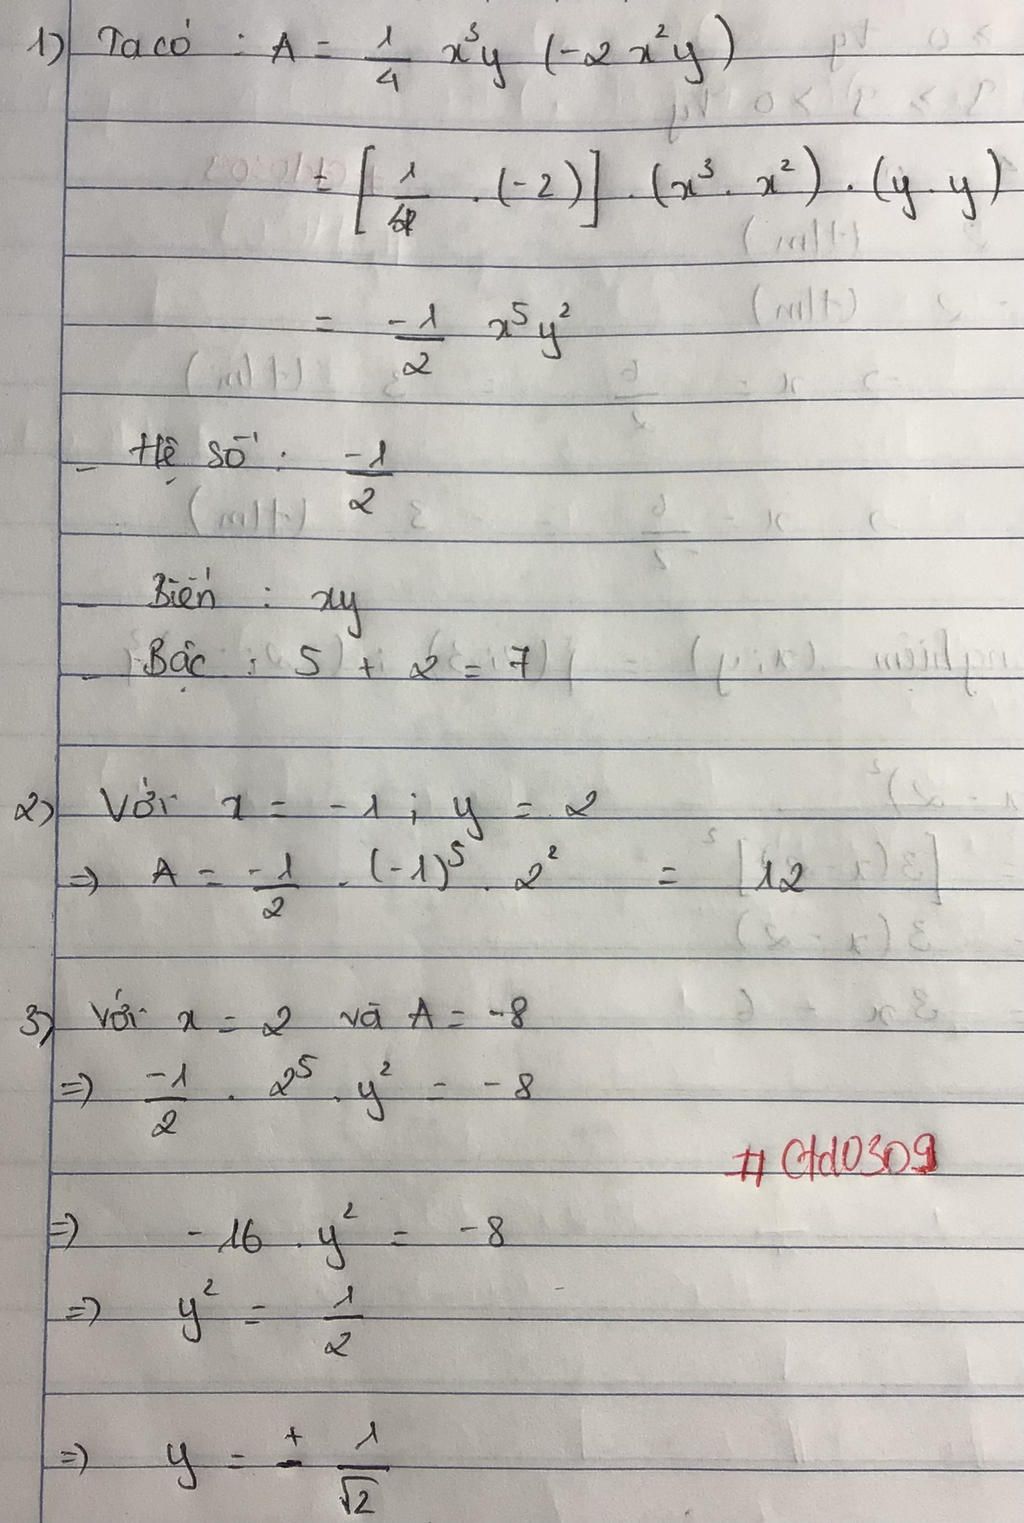 1) Ta có : A = 1/4 x³y (-2x²y)
= [1/4 . (-2)] . (x³ . x²) . (y . y)
= -1/2 x⁵y²
- Hệ số : -1/2
- Biến : xy
- Bậc : 5 + 2 = 7
2) Với x = -1 ; y = 2
=> A = -1/2 . (-1)⁵ . 2² = 12
3) Với x = 2 và A = -8
=> -1/2 . 2⁵ . y² = -8
# Ctd0309
=> -16 . y² = -8
=> y² = 1/2
=> y = ± 1/√2